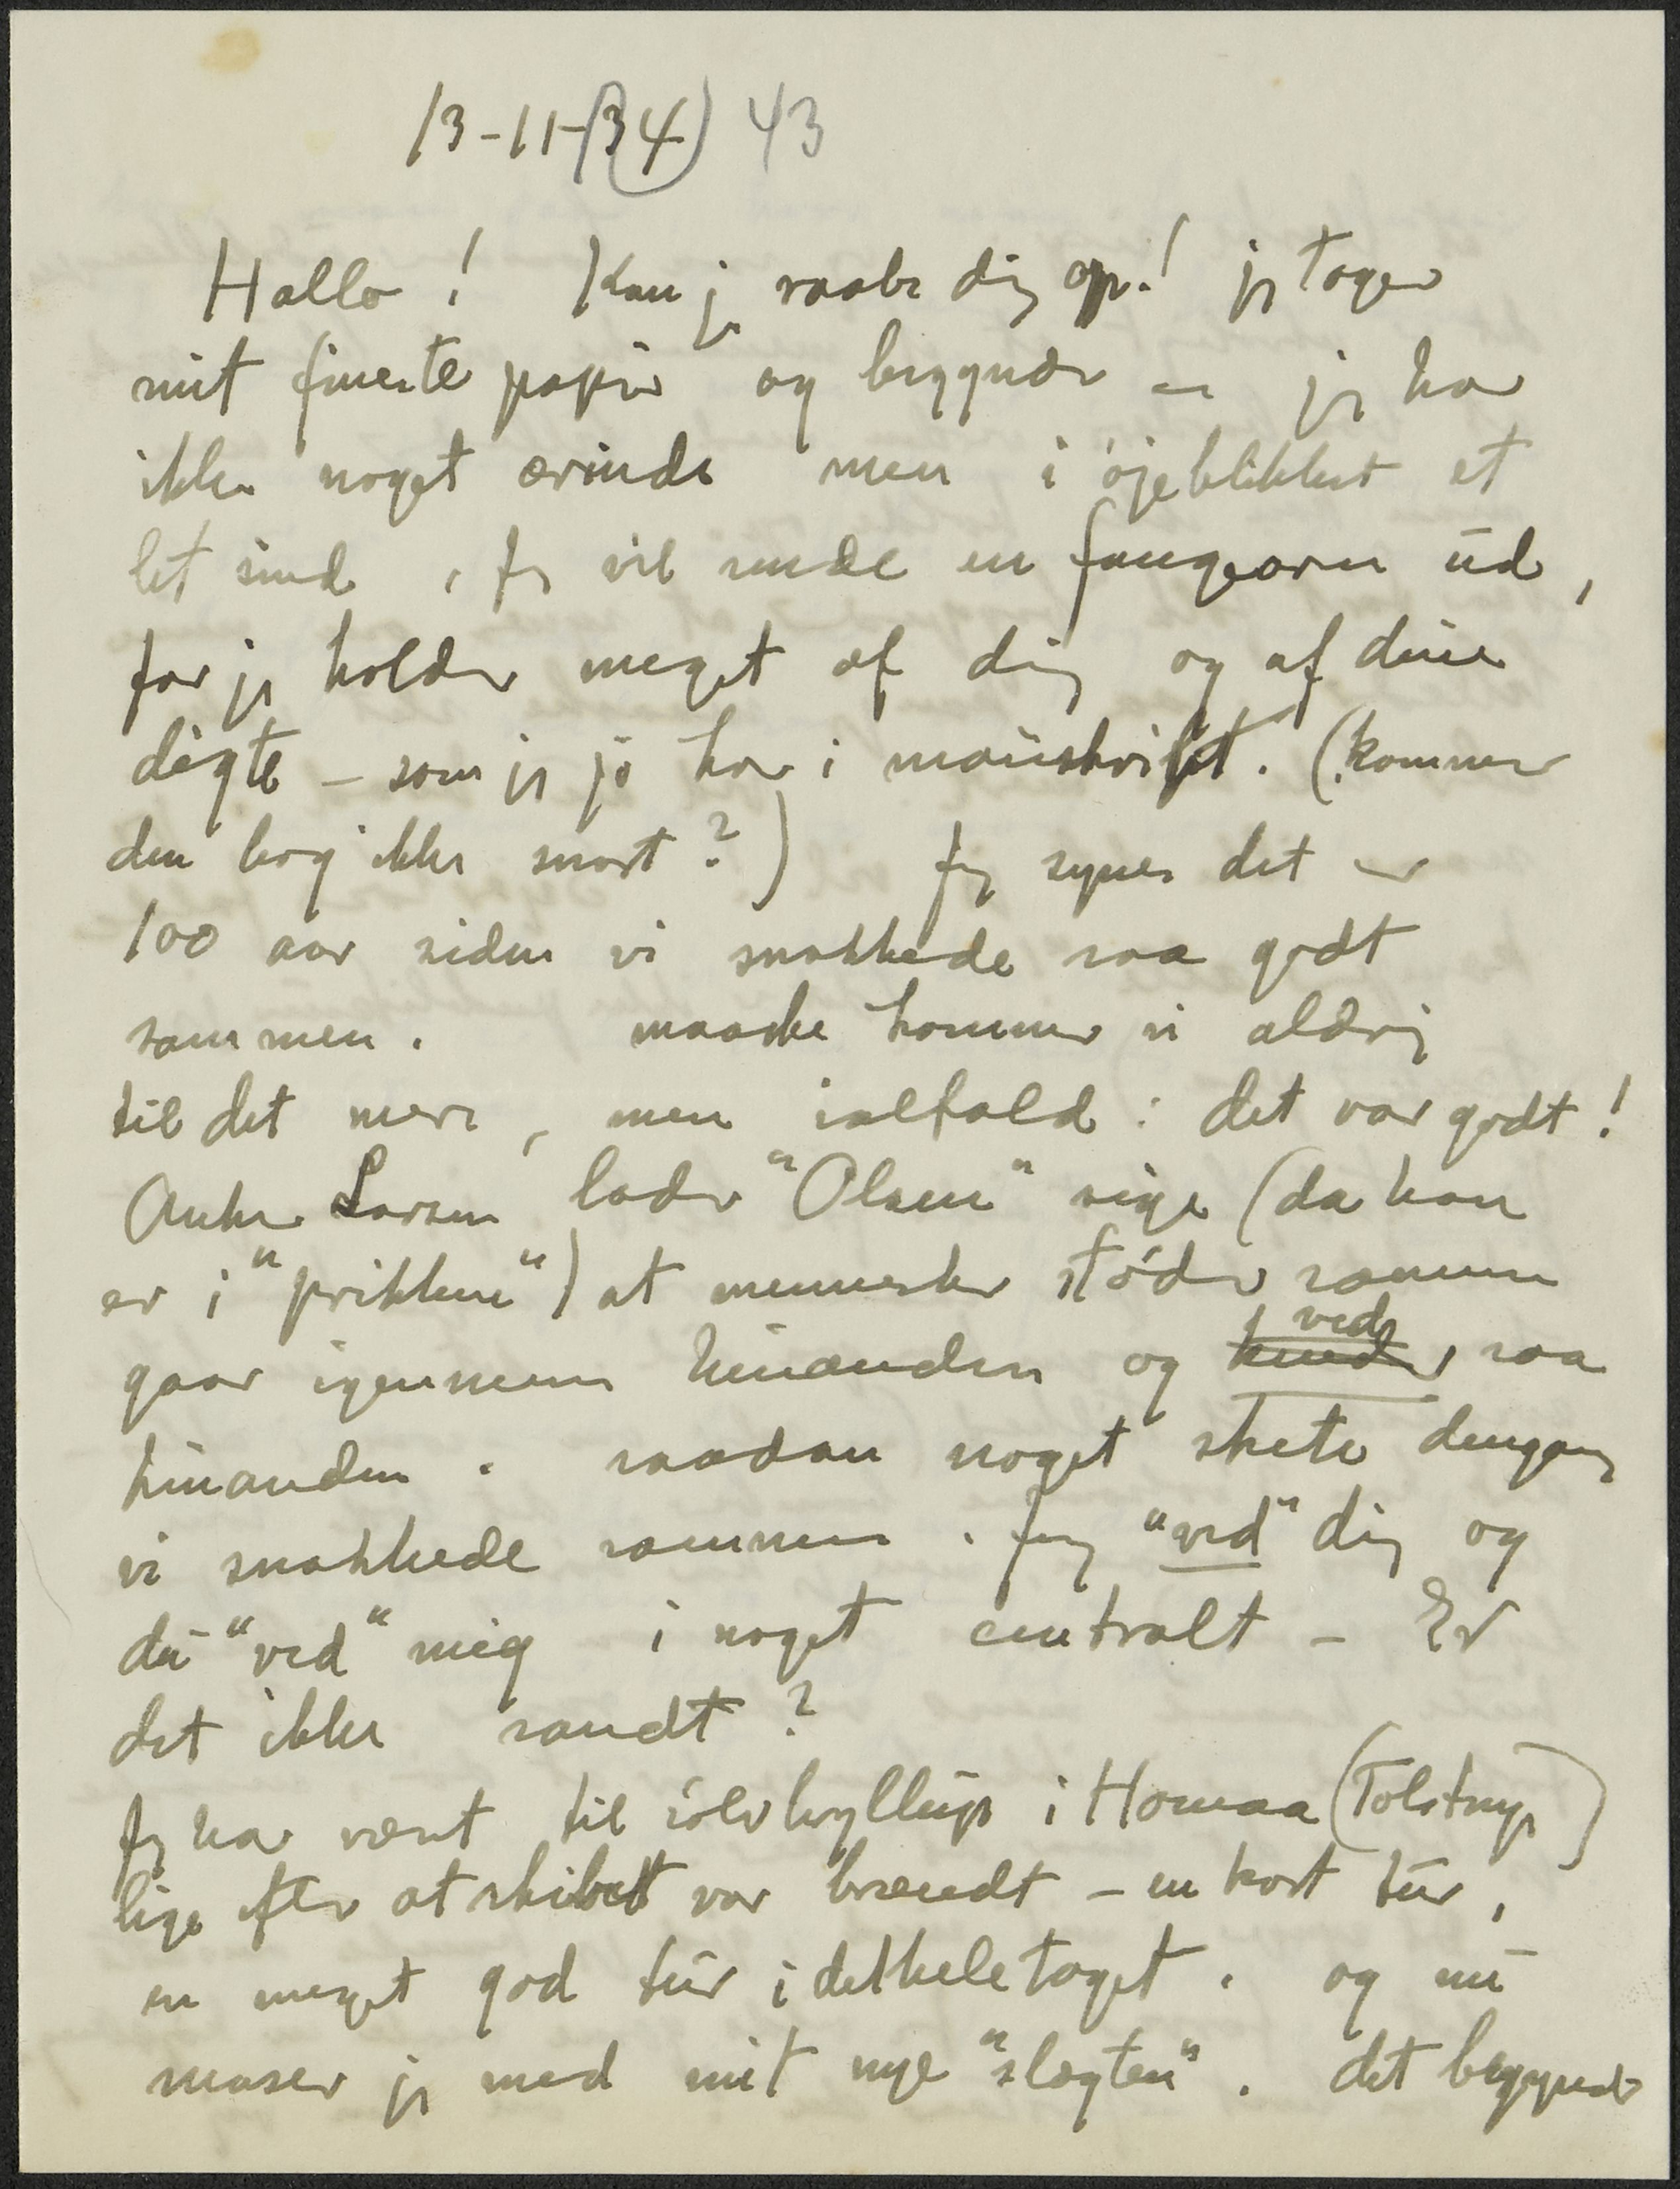 13-11-(34) 43
Hallo! Kan jeg raabe dig op! jeg tager
mit fineste papir og begynder — jeg har
ikke noget ærinde men i øjeblikket et
let sind, Jeg vil sende en fangearm ud,
for jeg holder meget af dig og af dine
digte — som jeg jo har i manuskript. (kommer
den bog ikke snart?) Jeg synes det er
100 aar siden vi snakkede saa godt
sammen. maaske kommer vi aldrig
til det mere, men ialfald: det var godt!
Anker Larsen lader "Olsen" sige (da han
er i "prikken") at mennesker støder sammen
gaar igennem hinanden og kender ved saa
hinanden. saadan noget skete dengang
vi snakkede sammen. Jeg "ved" dig og
du "ved" mig i noget centralt — Er
det ikke sandt?
Jeg har været til sølvbryllup i Homaa (Tolstrup)
lige efter at skibet var brændt — en kort tur,
en meget god tur i detheletaget. og nu
maser jeg med mit nye "slægten". det begynder